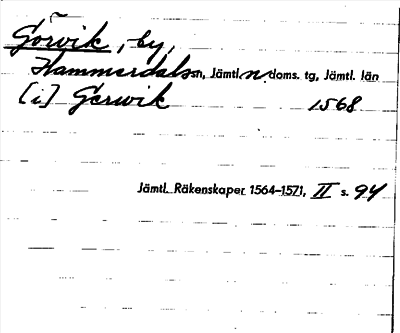 Görvik, by,
Hammerdals sn, Jämtl. n. doms. tg, Jämtl. län
[i] Gerwik 1568
Jämtl. Räkenskaper 1564–1571, II s. 94